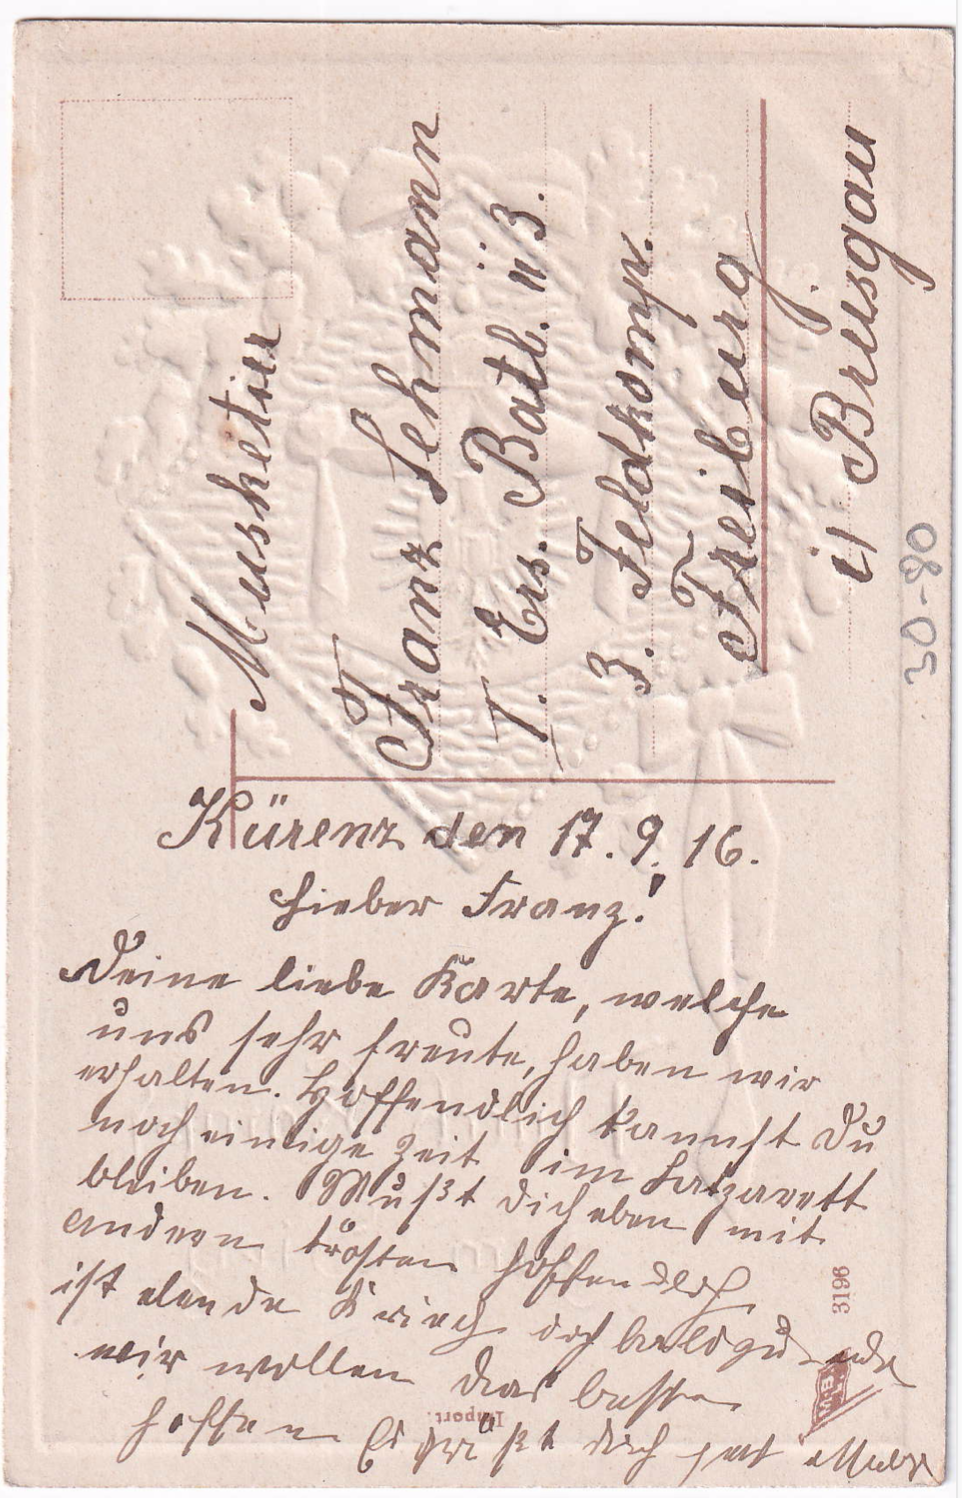 Musketier
Franz Lehmann
I. Ers. Batl. 113.
3. Feldkomp.
Freiburg
i/ Breisgau
30-80
Kürenz den 17. 9. 16.
Lieber Franz!
Deine liebe Karte, welche
uns sehr freute, haben wir
erhalten. Hoffendlich kannst Du
noch einige Zeit im Latzarett
bleiben. Mußt dich eben mit
andern trösten hoffendlich
ist elende Krieg doch bald zu ende
wir wollen das beste
hoffen Es grüßt dich
3196
Import.